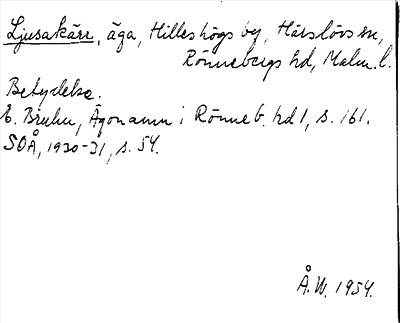 Ljusakärr, äga, Hilleshögs by, Härslövs sn,
Rönnebergs hd, Malm. l.
Betydelse.
E. Bruhn, Ägonamn i Rönneb. hd 1, s. 161.
SOÅ, 1930-31, s. 54.
Å. W. 1954.